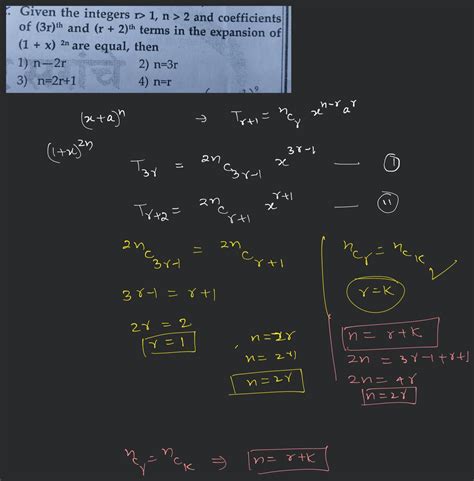 Given the integers r> 1, n > 2 and coefficients
of (3r)th and (r + 2)th terms in the expansion of
(1 + x) 2n are equal, then
1) n—2r 2) n=3r
3) n=2r+1 4) n=r
(x+a)^n → T_{r+1} = ^nC_r x^{n-r} a^r
(1+x)^{2n}
T_{3r} = ^{2n}C_{3r-1} x^{3r-1} — (I)
T_{r+2} = ^{2n}C_{r+1} x^{r+1} — (II)
^{2n}C_{3r-1} = ^{2n}C_{r+1}
3r-1 = r+1
2r = 2
r = 1
n=2r
n= 2×1
n=2r
^nC_r = ^nC_K
r=K
n= r+K
2n = 3r-1+r+1
2n = 4r
n=2r
^nC_r = ^nC_K ⇒ n= r+K